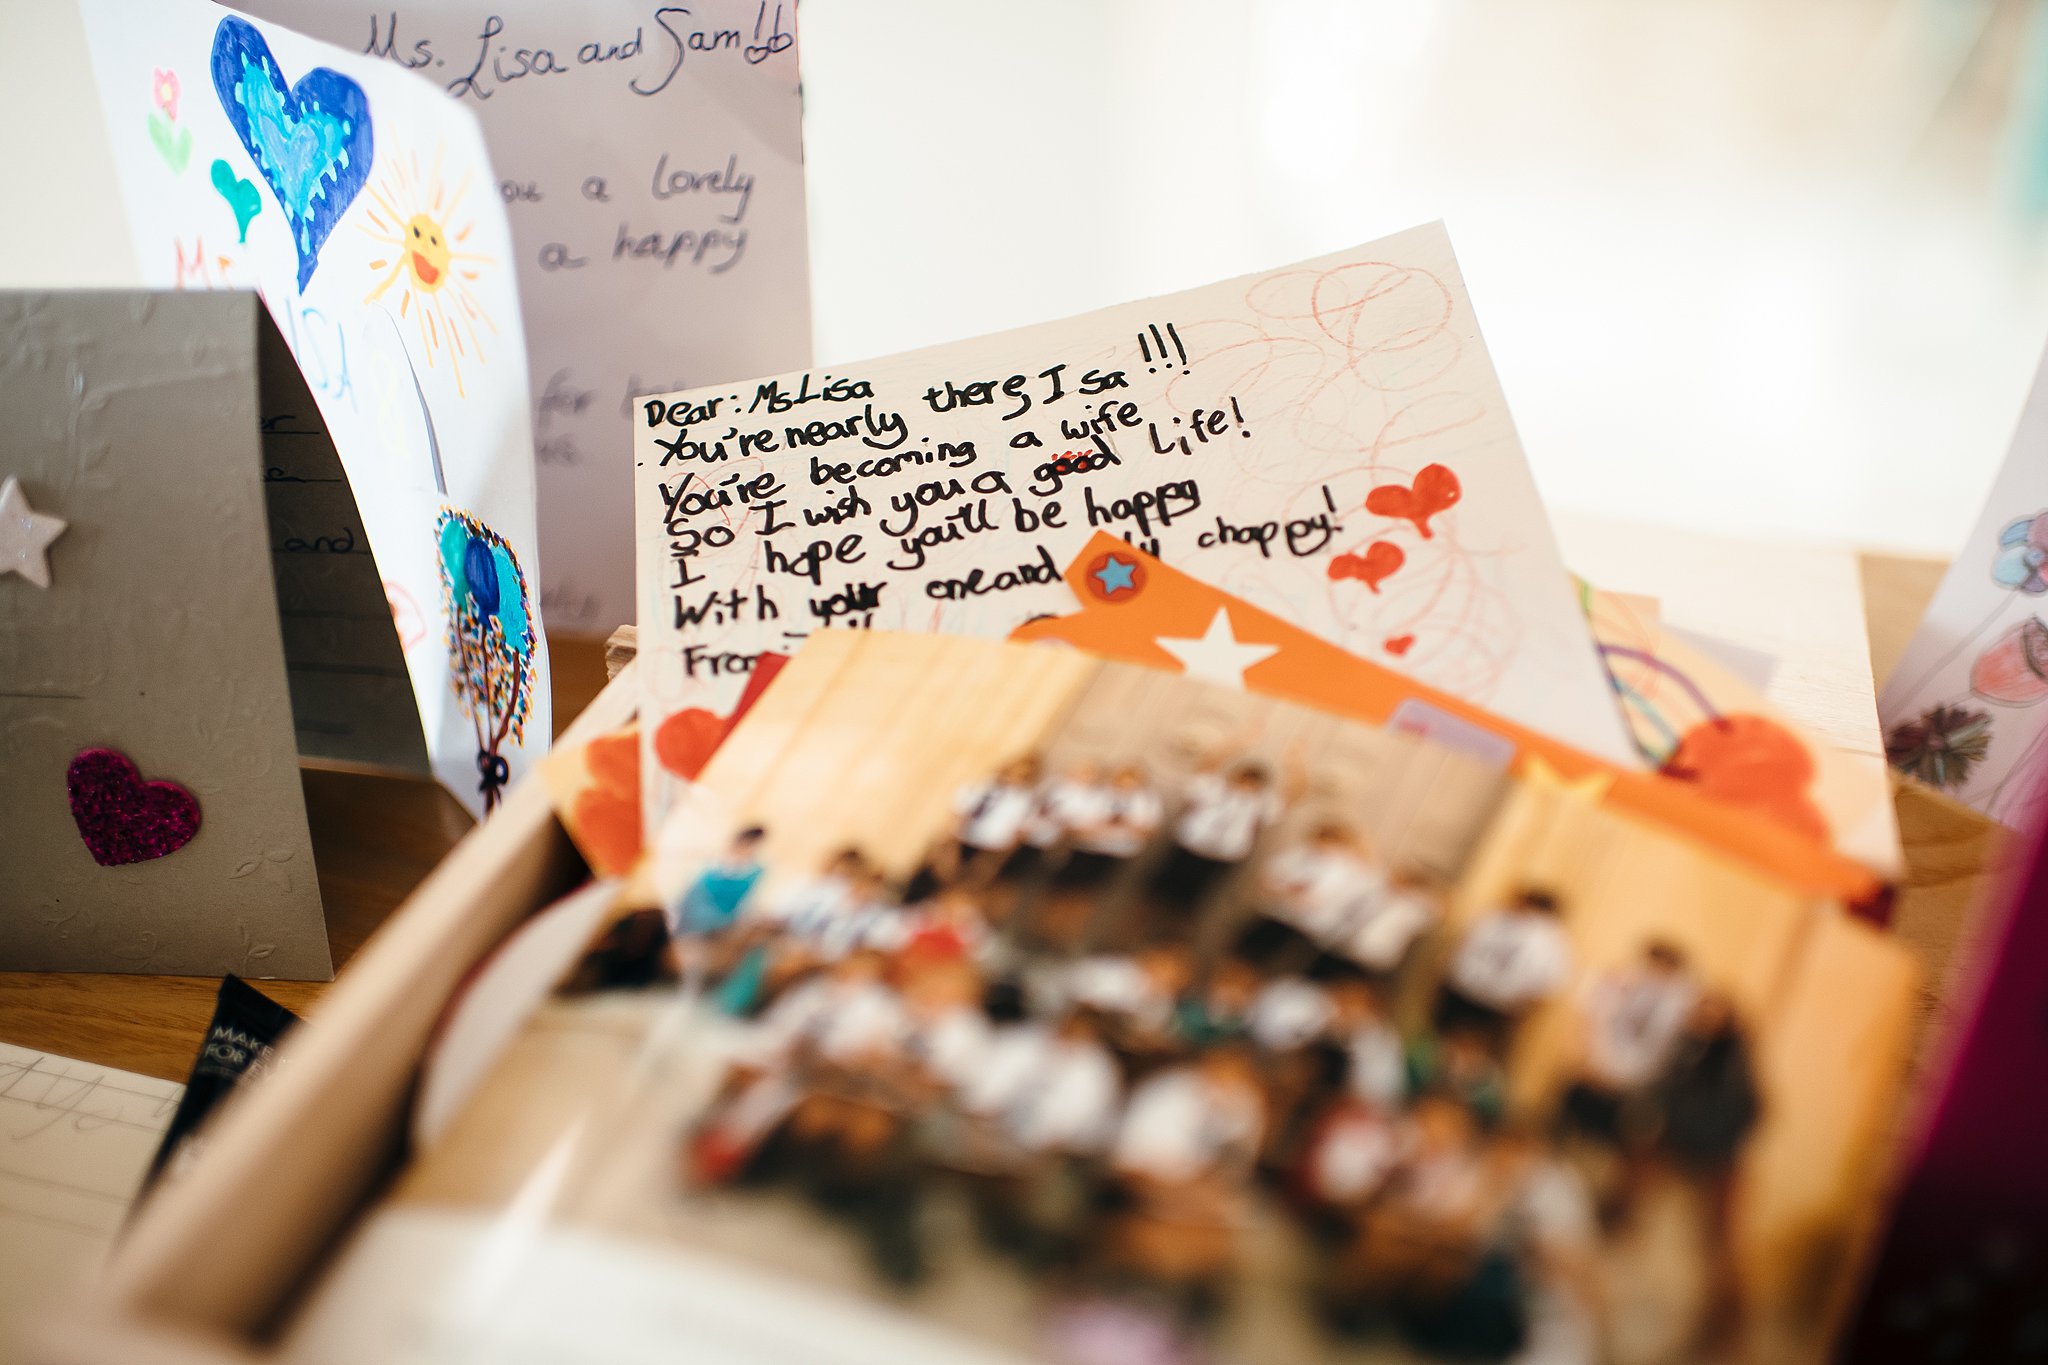 Ms. Lisa and Sam!!
ou a lovely
a happy
for
Ms
LISA
and
Dear: Ms Lisa
You're nearly there, I sa !!!
You're becoming a wife
So I wish you a good Life!
I hope you'll be happy
With your one and ly chappy!
From
MAKE
FOR